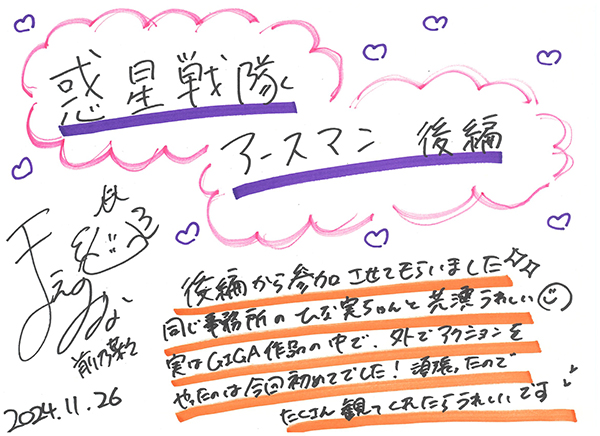 惑星戦隊
アースマン 後編
後編から参加させてもらいました
同じ事務所のひな実ちゃんと共演うれしい
実はGIGA作品の中で、外でアクションを
やったのは今回初めてでした！頑張ったので
たくさん観てくれたらうれしいです
2024.11.26